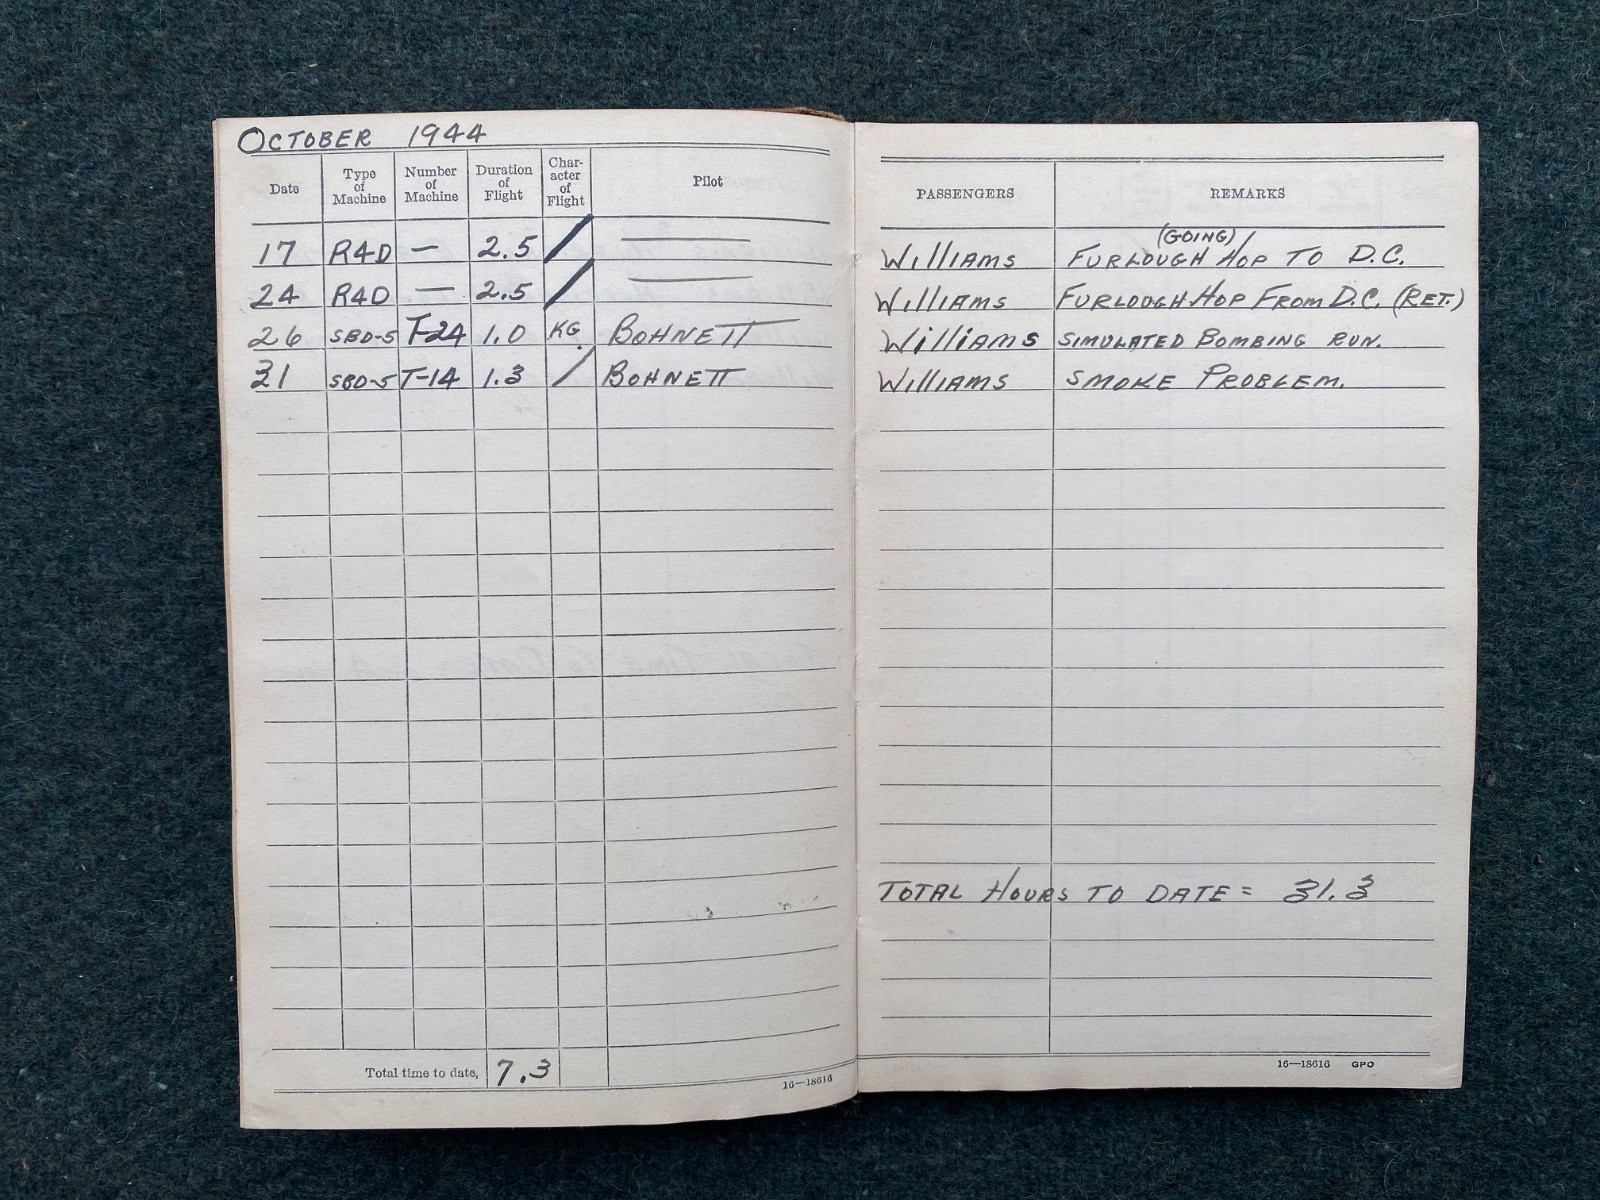 OCTOBER 1944
Date Type of Machine Number of Machine Duration of Flight Char-acter of Flight Pilot PASSENGERS REMARKS
17 R4D — 2.5 / — Williams FURLOUGH (GOING) HOP TO D.C.
24 R4D — 2.5 / — Williams FURLOUGH HOP FROM D.C. (RET.)
26 SBD-5 T-24 1.0 KG BOHNETT Williams SIMULATED BOMBING RUN.
31 SBD-5 T-14 1.3 / BOHNETT Williams SMOKE PROBLEM.
TOTAL HOURS TO DATE = 31.3
Total time to date, 7.3
16—18616
16—18616 GPO